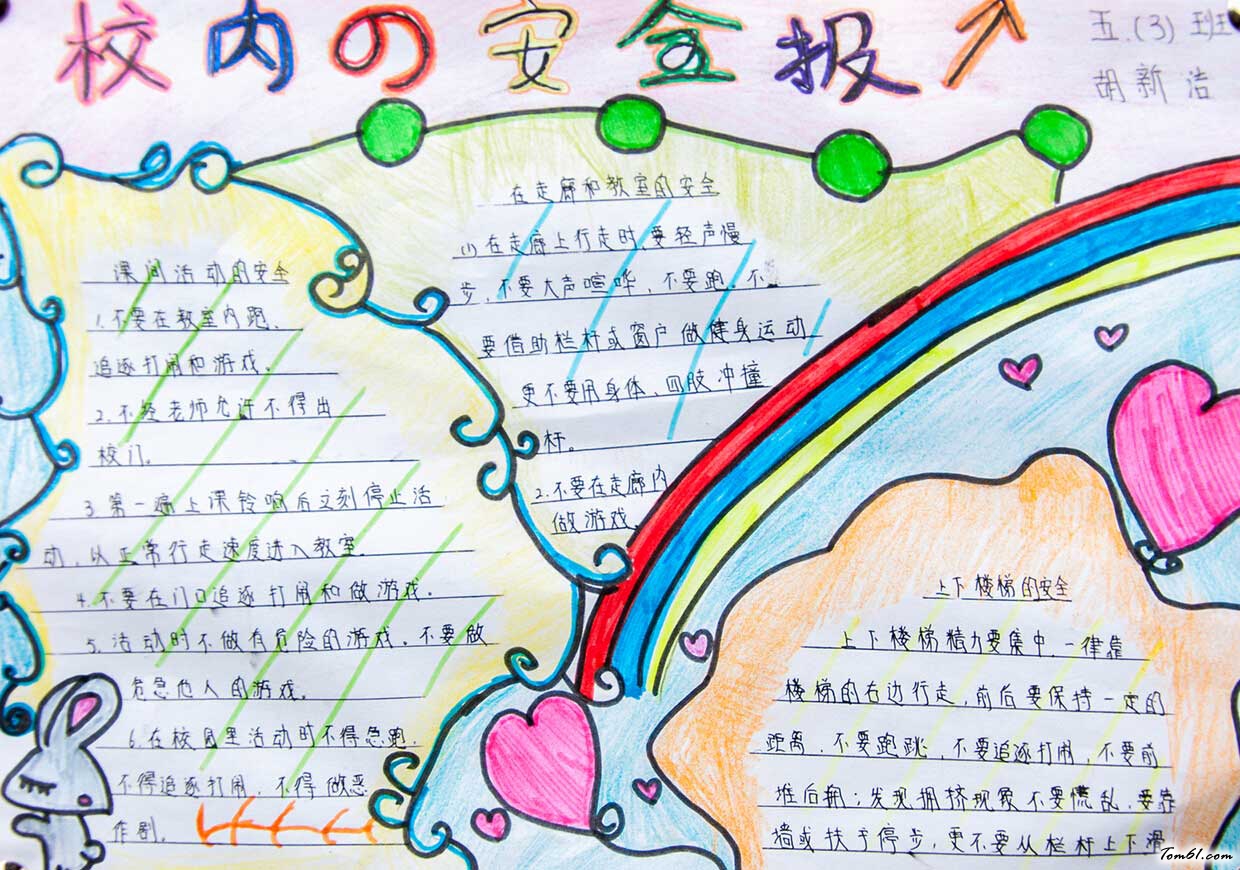 校内の安全报
五.(3)班
胡新洁
课间活动的安全
1.不要在教室内跑.
追逐打闹和游戏.
2.不经老师允许不得出
校门.
3.第一遍上课铃响后立刻停止活
动,以正常行走速度进入教室.
4.不要在门口追逐打闹和做游戏.
5.活动时不做有危险的游戏.不要做
危急他人的游戏.
6.在校园里活动时不得急跑.
不得追逐打闹,不得做恶
作剧.
在走廊和教室的安全
(1)在走廊上行走时,要轻声慢
步,不要大声喧哗,不要跑.不
要借助栏杆或窗户做健身运动
更不要用身体、四肢冲撞
杆。
2.不要在走廊内
做游戏.
上下楼梯的安全
上下楼梯精力要集中,一律靠
楼梯的右边行走,前后要保持一定的
距离,不要跑跳,不要追逐打闹,不要前
推后拥;发现拥挤现象不要慌乱,要靠
墙或扶手停步,更不要从栏杆上下滑
Tom61.com